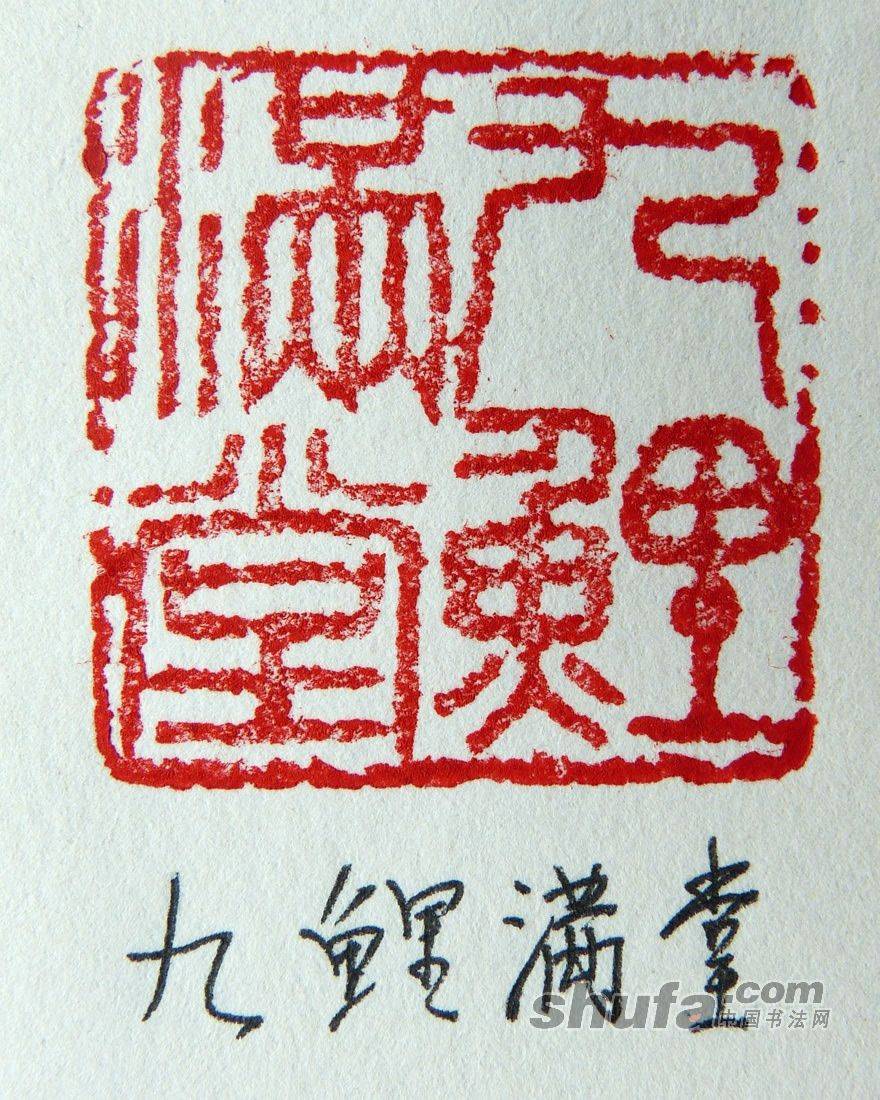 九鯉
滿堂
九鯉滿堂
shufa.com
中国书法网